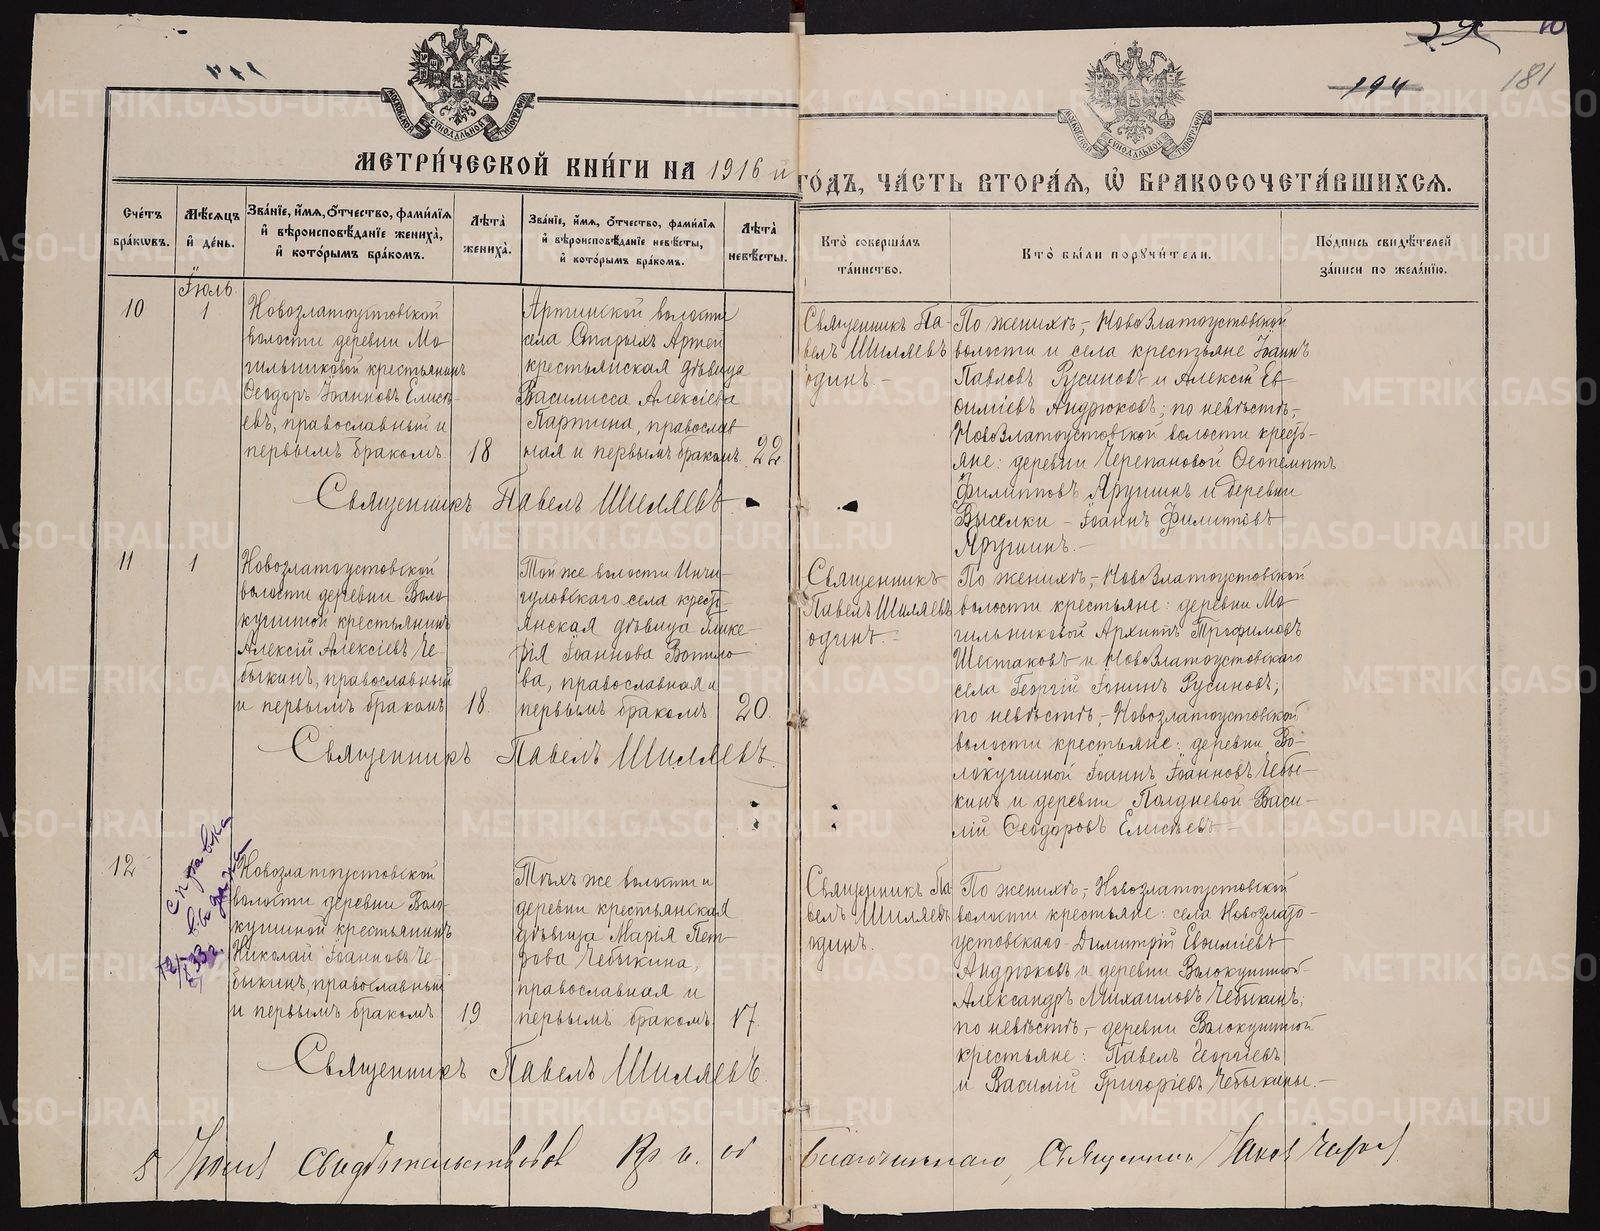 181
194
МЕТРИ́ЧЕСКОЙ КНИ́ГИ НА 1916 й ГО́ДЪ, ЧА́СТЬ ВТОРА́Я, Ѡ БРАКОСОЧЕТА́ВШИХСЯ.
Сче́тъ бра́кѡвъ.
Мѣ́сяцъ и де́нь.
Зва́нїе, и́мя, ѻ́тчество, фами́лїя и вѣроисповѣ́данїе жениха̀, и кото́рымъ бра́комъ.
Лѣта̀ жениха̀.
Зва́нїе, и́мя, ѻ́тчество, фами́лїя и вѣроисповѣ́данїе невѣ́сты, и кото́рымъ бра́комъ.
Лѣта̀ невѣ́сты.
Кто̀ соверша́лъ та́инство.
Кто̀ бы́ли порꙋчи́тели.
По́дпись свидѣ́телей за́писи по жела́нїю.
Іюль
10
1
Новозлатоустовской
волости деревни Мо-
гильниковой крестьянинъ
Ѳеодоръ Іоанновъ Елисѣ-
евъ, православный и
первымъ бракомъ
18
Артинской волости
села Старыхъ Артей
крестьянская дѣвица
Василисса Алексіева
Партина, православ
ная и первымъ бракомъ.
22
Священникъ Па-
велъ Шиляевъ
одинъ.-
По женихѣ,- Новозлатоустовской
волости и села крестьяне Іоаннъ
Павловъ Русиновъ и Алексій Ев-
ѳиміевъ Андрюковъ; по невѣстѣ,-
Новозлатоустовской волости кресть-
яне: деревни Черепановой Ѳеопемптъ
Филипповъ Яругинъ и деревни
Выселки - Іоаннъ Филипповъ
Яругинъ.-
Священникъ Павелъ Шиляевъ.
11
1
Новозлатоустовской
волости деревни Воло-
кушиной крестьянинъ
Алексій Алексіевъ Че-
быкинъ, православный
и первымъ бракомъ
18.
Той же волости Инчи-
гуловскаго села кресть-
янская дѣвица Глике-
рія Іоаннова Вопило-
ва, православная и
первымъ бракомъ
20.
Священникъ
Павелъ Шиляевъ
одинъ.-
По женихѣ,- Новозлатоустовской
волости крестьяне: деревни Мо-
гильниковой Архиппъ Трофимовъ
Шестаковъ и Новозлатоустовскаго
села Георгій Іонинъ Русиновъ;
по невѣстѣ,- Новозлатоустовской
волости крестьяне: деревни Во-
локушиной Іоаннъ Іоанновъ Чебы-
кинъ и деревни Полдневой Васи-
лій Ѳеодоровъ Елисѣевъ.-
Священникъ Павелъ Шиляевъ.
12
справка
выдана
Новозлатоустовской
волости деревни Воло-
кушиной крестьянинъ
Николай Іоанновъ Че-
быкинъ, православный
и первымъ бракомъ
19
Тѣхъ же волости и
деревни крестьянская
дѣвица Марія Пет-
рова Чебыкина,
православная и
первымъ бракомъ.
17.
Священникъ Па-
велъ Шиляевъ
одинъ.
По женихѣ,- Новозлатоустовской
волости крестьяне: села Новозлато-
устовскаго Димитрій Евѳиміевъ
Андрюковъ и деревни Волокушиной
Александръ Михаиловъ Чебыкинъ;
по невѣстѣ,- деревни Волокушиной
крестьяне: Павелъ Георгіевъ
и Василій Григоріевъ Чебыкины.-
Священникъ Павелъ Шиляевъ.
Свидѣтельствовалъ
Благочиннаго, Священникъ
METRIKI.GASO-URAL.RU